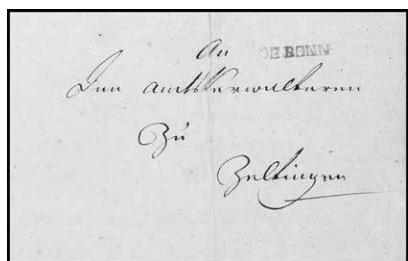 An
DE BONN
Den Amtsverwalteren
Zu
Zeltingen